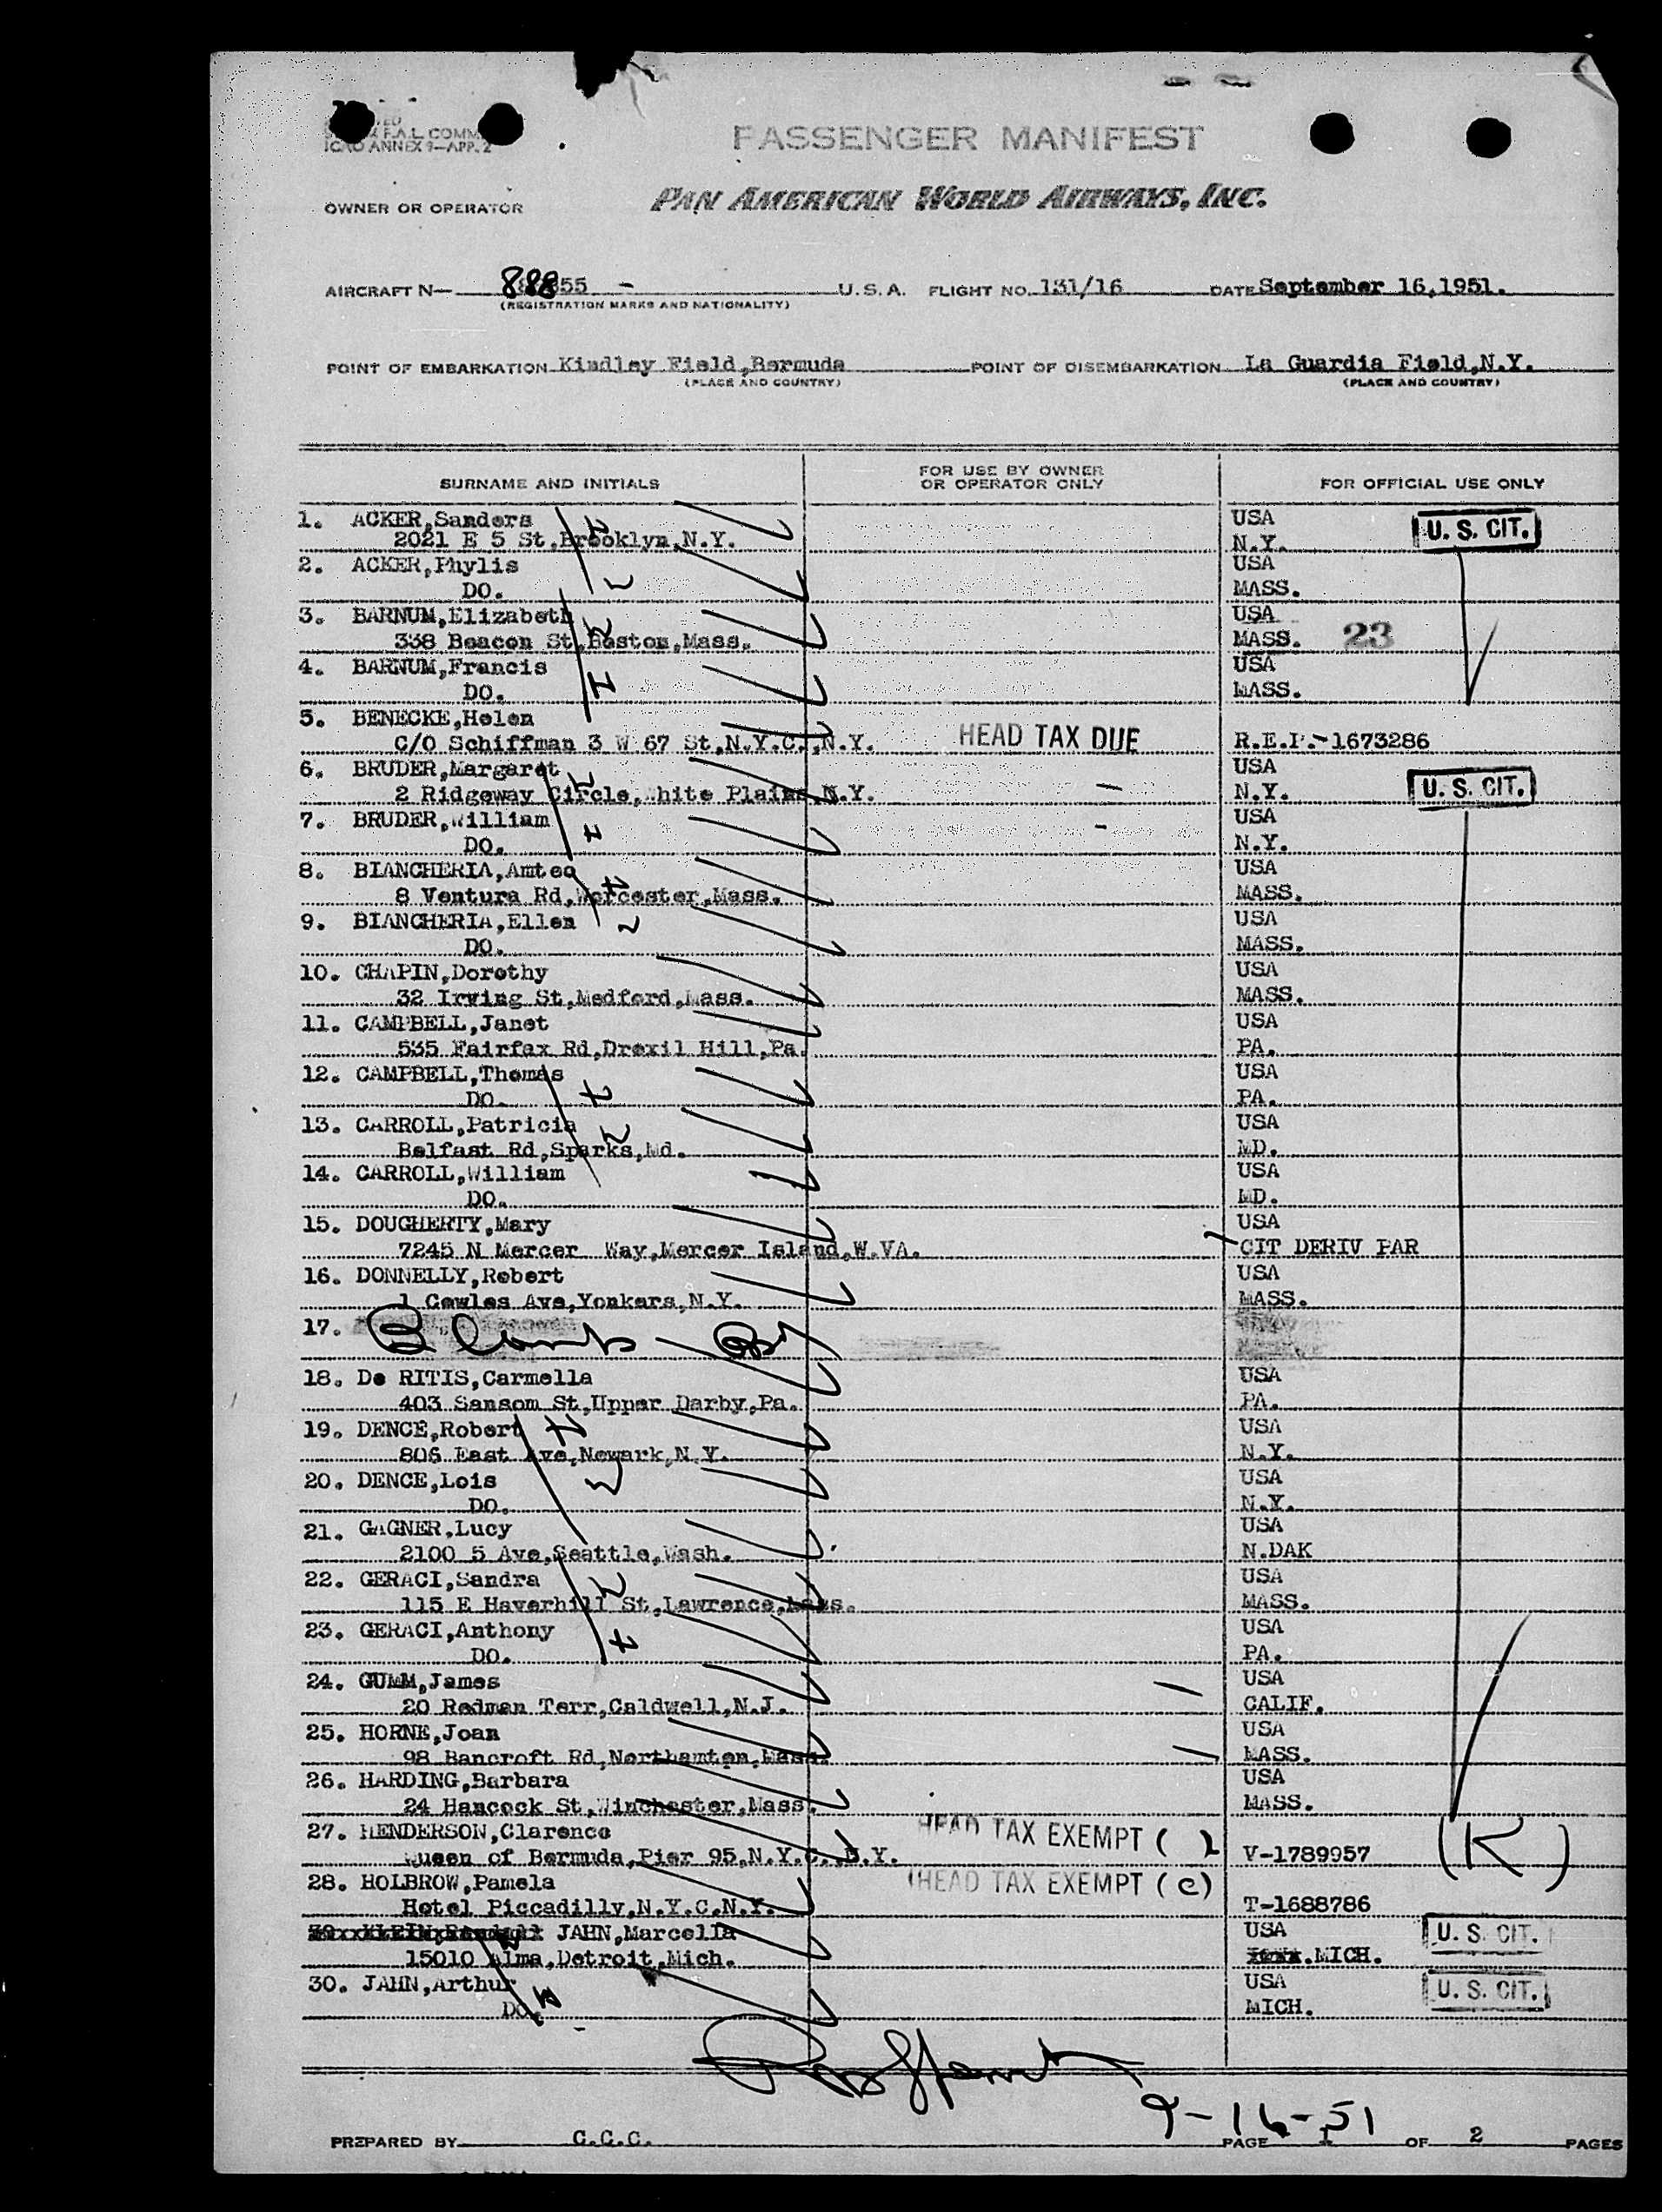 F.A.L. COMM.
ICAO ANNEX 9-APP. 2
PASSENGER MANIFEST
OWNER OR OPERATOR PAN AMERICAN WORLD AIRWAYS, INC.
AIRCRAFT N— 88855 - U.S.A. FLIGHT NO. 131/16 DATE September 16,1951.
(REGISTRATION MARKS AND NATIONALITY)
POINT OF EMBARKATION Kindley Field,Bermuda POINT OF DISEMBARKATION La Guardia Field,N.Y.
(PLACE AND COUNTRY) (PLACE AND COUNTRY)
SURNAME AND INITIALS FOR USE BY OWNER OR OPERATOR ONLY FOR OFFICIAL USE ONLY
1. ACKER,Sanders USA U. S. CIT.
2021 E 5 St,Brooklyn,N.Y. N.Y.
2. ACKER,Phylis USA
DO. MASS.
3. BARNUM,Elizabeth USA
338 Beacon St,Boston,Mass. MASS. 23
4. BARNUM,Francis USA
DO. MASS.
5. BENECKE,Helen
C/O Schiffman 3 W 67 St,N.Y.C.,N.Y. HEAD TAX DUE R.E.P.-1673286
6. BRUDER,Margaret USA
2 Ridgeway Circle,White Plains N.Y. N.Y. U. S. CIT.
7. BRUDER,William USA
DO. N.Y.
8. BIANCHERIA,Amteo USA
8 Ventura Rd,Worcester,Mass. MASS.
9. BIANCHERIA,Ellen USA
DO. MASS.
10. CHAPIN,Dorothy USA
32 Irving St,Medford,Mass. MASS.
11. CAMPBELL,Janet USA
535 Fairfax Rd,Drexil Hill,Pa. PA.
12. CAMPBELL,Thomas USA
DO. PA.
13. CARROLL,Patricia USA
Belfast Rd,Sparks,Md. MD.
14. CARROLL,William USA
DO. MD.
15. DOUGHERTY,Mary USA
7245 N Mercer Way,Mercer Island,W.VA. CIT DERIV PAR
16. DONNELLY,Robert USA
1 Cowles Ave,Yonkers,N.Y. MASS.
17.
18. De RITIS,Carmella USA
403 Sansom St,Upper Darby,Pa. PA.
19. DENCE,Robert USA
806 East Ave,Newark,N.Y. N.Y.
20. DENCE,Lois USA
DO. N.Y.
21. GAGNER,Lucy USA
2100 5 Ave,Seattle,Wash. N.DAK
22. GERACI,Sandra USA
115 E Haverhill St,Lawrence,Mass. MASS.
23. GERACI,Anthony USA
DO. PA.
24. GUMM,James USA
20 Redman Terr,Caldwell,N.J. CALIF.
25. HORNE,Joan USA
98 Bancroft Rd,Northamton,Mass. MASS.
26. HARDING,Barbara USA
24 Hancock St,Winchester,Mass. MASS.
27. HENDERSON,Clarence HEAD TAX EXEMPT ( )
Queen of Bermuda,Pier 95,N.Y.C.,N.Y. V-1789957 (K)
28. HOLBROW,Pamela HEAD TAX EXEMPT (C)
Hotel Piccadilly,N.Y.C.N.Y. T-1688786
JAHN,Marcella USA U. S. CIT.
15010 Alma,Detroit,Mich. MICH.
30. JAHN,Arthur USA U. S. CIT.
DO. MICH.
9-16-51
PREPARED BY C.C.C. PAGE 1 OF 2 PAGES